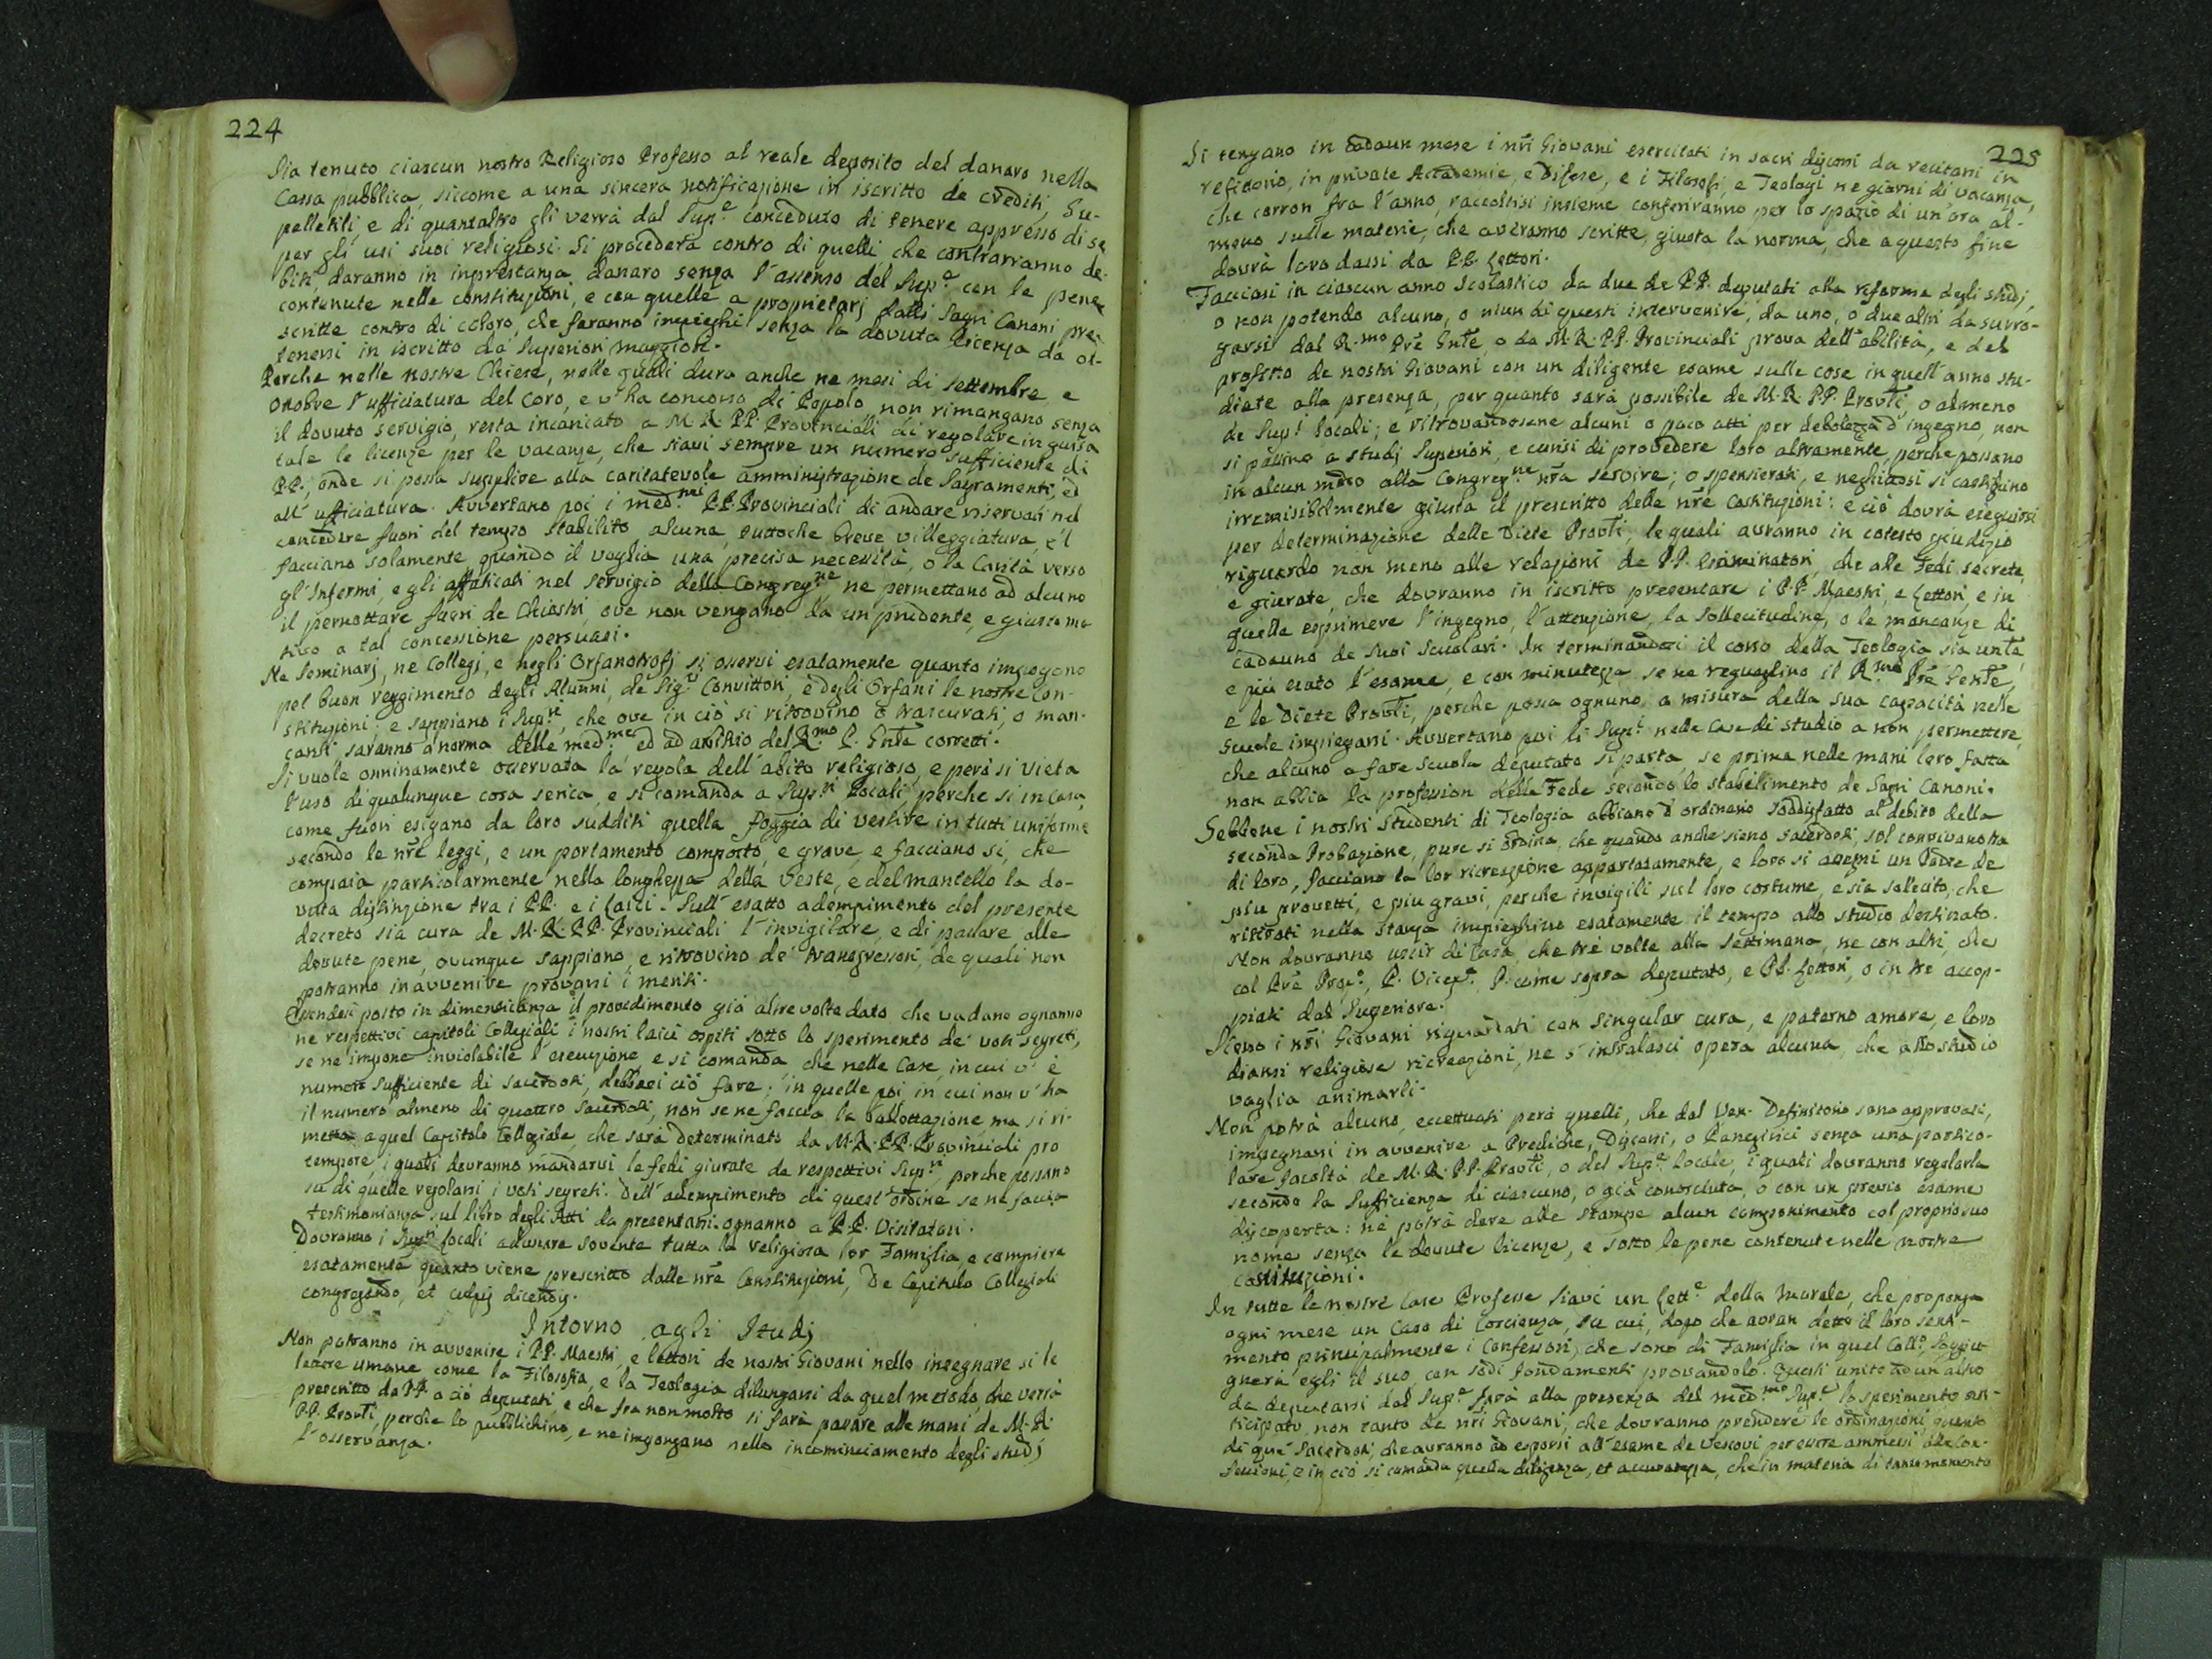 224
Sia tenuto ciascun nostro Religioso Professo al reale deposito del danaro nella
Cassa pubblica, siccome a una sincera notificazione in iscritto de crediti, Su-
pelletili, e di quantaltro gli verrà dal Sup.e conceduto di tenere appresso di se
per gli usi suoi religiosi. Si procederà contro di quelli, che contrarranno de-
biti, daranno in imprestanza danaro senza l'assenso del Sup.e con le pene
contenute nelle constituzioni, e con quelle a proprietarj dalli Sagri Canoni pre-
scritte contro di coloro, che faranno impieghi senza la dovuta licenza da ot-
tenersi in iscritto da Superiori maggiori.
Perche nelle nostre Chiese, nelle quali dura anche ne mesi di settembre e
Ottobre l'ufficiatura del Coro, e v'ha concorso di Popolo non rimangano senza
il dovuto servigio, resta incaricato a M. R. PP. Provinciali di regolare in guisa
tale le licenze per le vacanze, che siavi sempre un numero sufficiente di
PP., onde si possa supplire alla caritatevole amministrazione de Sagramenti, ed
all'ufficiatura. Avvertano poi i med.mi PP. Provinciali di andare riservati nel
concedere fuori del tempo stabilito alcuna, tuttoche breve villeggiatura, e'l
facciano solamente quando il voglia una precisa necessità, o la Carità verso
gl'Infermi, e gli affaticati nel servigio della Congreg.ne ne permettano ad alcuno
il pernottare fuori de Chiostri, ove non vengano da un prudente, e giusto mo
tivo a tal concessione persuasi.
Ne Seminarj, ne Collegj, e negli Orfanotrofj si osservi esatamente quanto impogono
pel buon reggimento degli Alunni, de Sig.ri Convittori, e degli Orfani le nostre Con-
stituzioni; e sappiano i Sup.ri, che ove in ciò si ritrovino o trascurati, o man-
canti, saranno a norma delle med.me ed ad arbitrio del R.mo P. Gnle corretti.
Si vuole onninamente osservata la regola dell'abito religioso, e però si vieta
l'uso di qualunque cosa serica, e si comanda a Sup.ri Locali, perche si in Casa,
come fuori esigano da loro sudditi quella foggia di vestire in tutti uniforme
secondo le nre leggi, e un portamento composto, e grave, e facciano sì, che
compaia particolarmente nella longhezza della Veste, e del mantello la do-
vuta distinzione tra i PP. e i Laici. Sull'esatto adempimento del presente
decreto sia cura de M. R. PP. Provinciali l'invigilare, e di passare alle
dovute pene, ovunque sappiano, e ritrovino de' trasgressori, de quali non
potranno in avvenire provarsi i meriti.
Essendosi posto in dimenticanza il provedimento già altre volte dato che vadano ognanno
ne respettivi capitoli Collegiali i nostri laici ospiti sotto lo sperimento de' voti segreti,
se ne impone inviolabile l'esecuzione, e si comanda che nelle Case, in cui v'è
numero sufficiente di sacerdoti, debbasi ciò fare; in quelle poi, in cui non v'ha
il numero almeno di quattro Sacerdoti, non se ne faccia la ballottazione ma si ri-
metta a quel Capitolo Collegiale che sarà determinato da M. R. PP. Provinciali pro
tempore, i quali dovranno mandarvi le fedi giurate de respettivi Sup.ri, perche possano
su di quelle regolarsi i voti segreti. Dell'adempimento di quest'ordine se ne faccia
testimonianza sul libro degli Atti da presentarsi ognanno a PP. Visitatori.
Dovranno i Sup.ri locali adunare sovente tutta la religiosa lor Famiglia, e compiere
esatamente quanto viene prescritto dalle nre Constituzioni, De Capitulo Collegiali
congregando, et culpis dicendis.
Intorno agli Studj
Non potranno in avvenire i PP. Maestri, e lettori de nostri Giovani nello insegnare sì le
lettere umane come la Filosofia, e la Teologia dilungarsi da quel metodo, che verrà
prescritto da PP. a ciò deputati, e che fra non molto si farà passare alle mani de M. R.
PP. Provli, perche lo pubblichino, e ne impongano nello incominciamento degli studj
l'osservanza.
225
Si tengano in cadaun mese i nri Giovani esercitati in sacri discorsi da recitarsi in
refittorio, in private Accademie, e difese, e i Filosofi, e Teologi ne giorni di vacanza,
che corron fra l'anno, raccoltisi insieme conferiranno per lo spazio di un'ora al-
meno sulle materie, che averanno scritte, giusta la norma, che a questo fine
dovrà loro darsi da PP. Lettori.
Facciasi in ciascun anno scolastico da due de PP. deputati alla riforma degli studj,
o non potendo alcuno, o niun di questi intervenire, da uno, o due altri da surro-
garsi dal R.mo Pre Gnle, o da M. R. PP. Provinciali prova dell'abilità, e del
profitto de nostri Giovani con un diligente esame sulle cose in quell'anno stu-
diate alla presenza, per quanto sarà possibile de M. R. PP. Provli, o almeno
de Sup.i locali; e ritrovandosene alcuni o poco atti per debolezza d'ingegno, non
si passino a studj Superiori, e curisi di provedere loro altramente, perche possano
in alcun modo alla Congreg.ne nra servire; o spensierati, e neghittosi si castighino
irremisibilmente giusta il prescritto delle nre Costituzioni: e ciò dovrà eseguirsi
per determinazione delle Diete Provli, le quali avranno in cotesto giudizio
riguardo non meno alle relazioni de PP. Esaminatori, che alle Fedi secrete,
e giurate, che dovranno in iscritto presentare i PP. Maestri, e Lettori, e in
quelle esprimere l'ingegno, l'attenzione, la sollecitudine, o le mancanze di
cadauno de suoi Scuolari. In terminandosi il corso della Teologia sia unle,
e più esato l'esame, e con minutezza se ne ragguaglino il R.mo Pre Genle,
e le Diete Provli, perche possa ognuno, a misura della sua capacità nelle
Scuole impiegarsi. Avvertano poi li Sup.i nelle Case di studio a non permettere,
che alcuno a fare scuola deputato si parta, se prima nelle mani loro fatta
non abbia la profession della Fede secondo lo stabilimento de Sagri Canoni.
Sebbene i nostri studenti di Teologia abbiano d'ordinario soddisfatto al debito della
seconda Probazione, pure si ordina, che quando anche sieno sacerdoti, sol convivano tra
di loro, facciano la lor ricreazione appartatamente, e loro si assegni un Padre de
più provetti, e più gravi, perche invigili sul loro costume, e sia sollecito, che
ritirati nella stanza impieghino esatamente il tempo allo studio destinato.
Non dovranno uscir di Casa, che tre volte alla settimana, ne con altri, che
col Pre Prep.o, P. Vicep.o, P. come sopra deputato, e PP. Lettori, o in tre accop-
piati dal Superiore.
Sieno i nri Giovani riguardati con singular cura, e paterno amore, e loro
diansi religiose ricreazioni, ne s'intralasci opera alcuna, che allo studio
vaglia animarli.
Non potrà alcuno, eccettuati però quelli, che dal Ven. Definitorio sono approvati,
impegnarsi in avvenire a Prediche, Discorsi, o Panegirici senza una partico-
lare facoltà de M. R. PP. Provli, o del Sup.e locale, i quali dovranno regolarla
secondo la sufficienza di ciascuno, o già conosciuta, o con un previo esame
discoperta: nè potrà dare alle stampe alcun componimento col proprio suo
nome senza le dovute licenze, e sotto le pene contenute nelle nostre
costituzioni.
In tutte le nostre Case Professe siavi un Lett.e della Morale, che proponga
ogni mese un Caso di Coscienza, su cui, dopo che avran detto il loro senti-
mento principalmente i Confessori, che sono di Famiglia in quel Coll.o, soggiu-
gnerà egli il suo, con sodi fondamenti provandolo. Questi unito ad un altro
da deputarsi dal Sup.e farà alla presenza del med.mo Sup.e lo sperimento an-
ticipato, non tanto de nri Giovani, che dovranno prendere le ordinazioni, quanto
di que' Sacerdoti, che avranno ad esporsi all'esame de Vescovi per essere ammessi alle Con-
fessioni, e in ciò si comanda quella diligenza, et accuratezza, che in materia di tanto momento